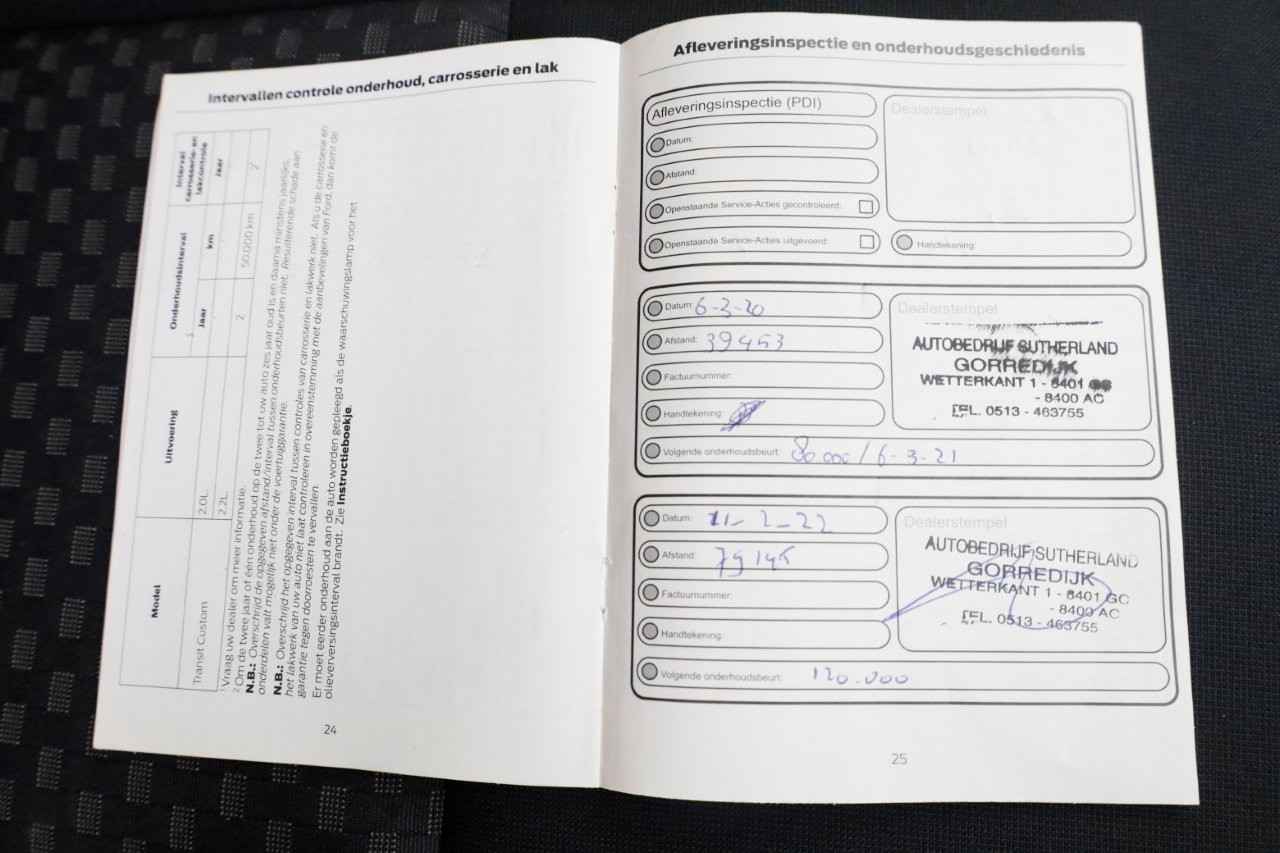 Intervallen controle onderhoud, carrosserie en lak
Model
Uitvoering
Onderhoudsinterval
Interval carrosserie- en lakcontrole
Jaar
km
Jaar
Transit Custom
2.0L
2.2L
2
50.000 km
2
¹ Vraag uw dealer om meer informatie.
² Om de twee jaar of één onderhoud op de twee tot uw auto zes jaar oud is en daarna minstens jaarlijks.
N.B.: Overschrijd de opgegeven afstand/interval tussen onderhoudsbeurten niet. Resulterende schade aan
onderdelen valt mogelijk niet onder de voertuiggarantie.
N.B.: Overschrijd het opgegeven interval tussen controles van carrosserie en lakwerk niet. Als u de carrosserie en
het lakwerk van uw auto niet laat controleren in overeenstemming met de aanbevelingen van Ford, dan komt de
garantie tegen doorroesten te vervallen.
Er moet eerder onderhoud aan de auto worden gepleegd als de waarschuwingslamp voor het
olieverversingsinterval brandt. Zie Instructieboekje.
24
Afleveringsinspectie en onderhoudsgeschiedenis
Afleveringsinspectie (PDI)
Dealerstempel
Datum:
Afstand:
Openstaande Service-Acties gecontroleerd:
Openstaande Service-Acties uitgevoerd:
Handtekening:
Datum: 6-3-20
Dealerstempel
Afstand: 39453
AUTOBEDRIJF SUTHERLAND
GORREDIJK
Factuurnummer:
WETTERKANT 1 - 8401
- 8400 AC
Handtekening:
TEL. 0513 - 463755
Volgende onderhoudsbeurt: 80.000 / 6-3-21
Datum: 11-2-22
Dealerstempel
Afstand: 79145
AUTOBEDRIJF SUTHERLAND
GORREDIJK
Factuurnummer:
WETTERKANT 1 - 8401 GC
- 8400 AC
Handtekening:
TEL. 0513 - 463755
Volgende onderhoudsbeurt: 120.000
25